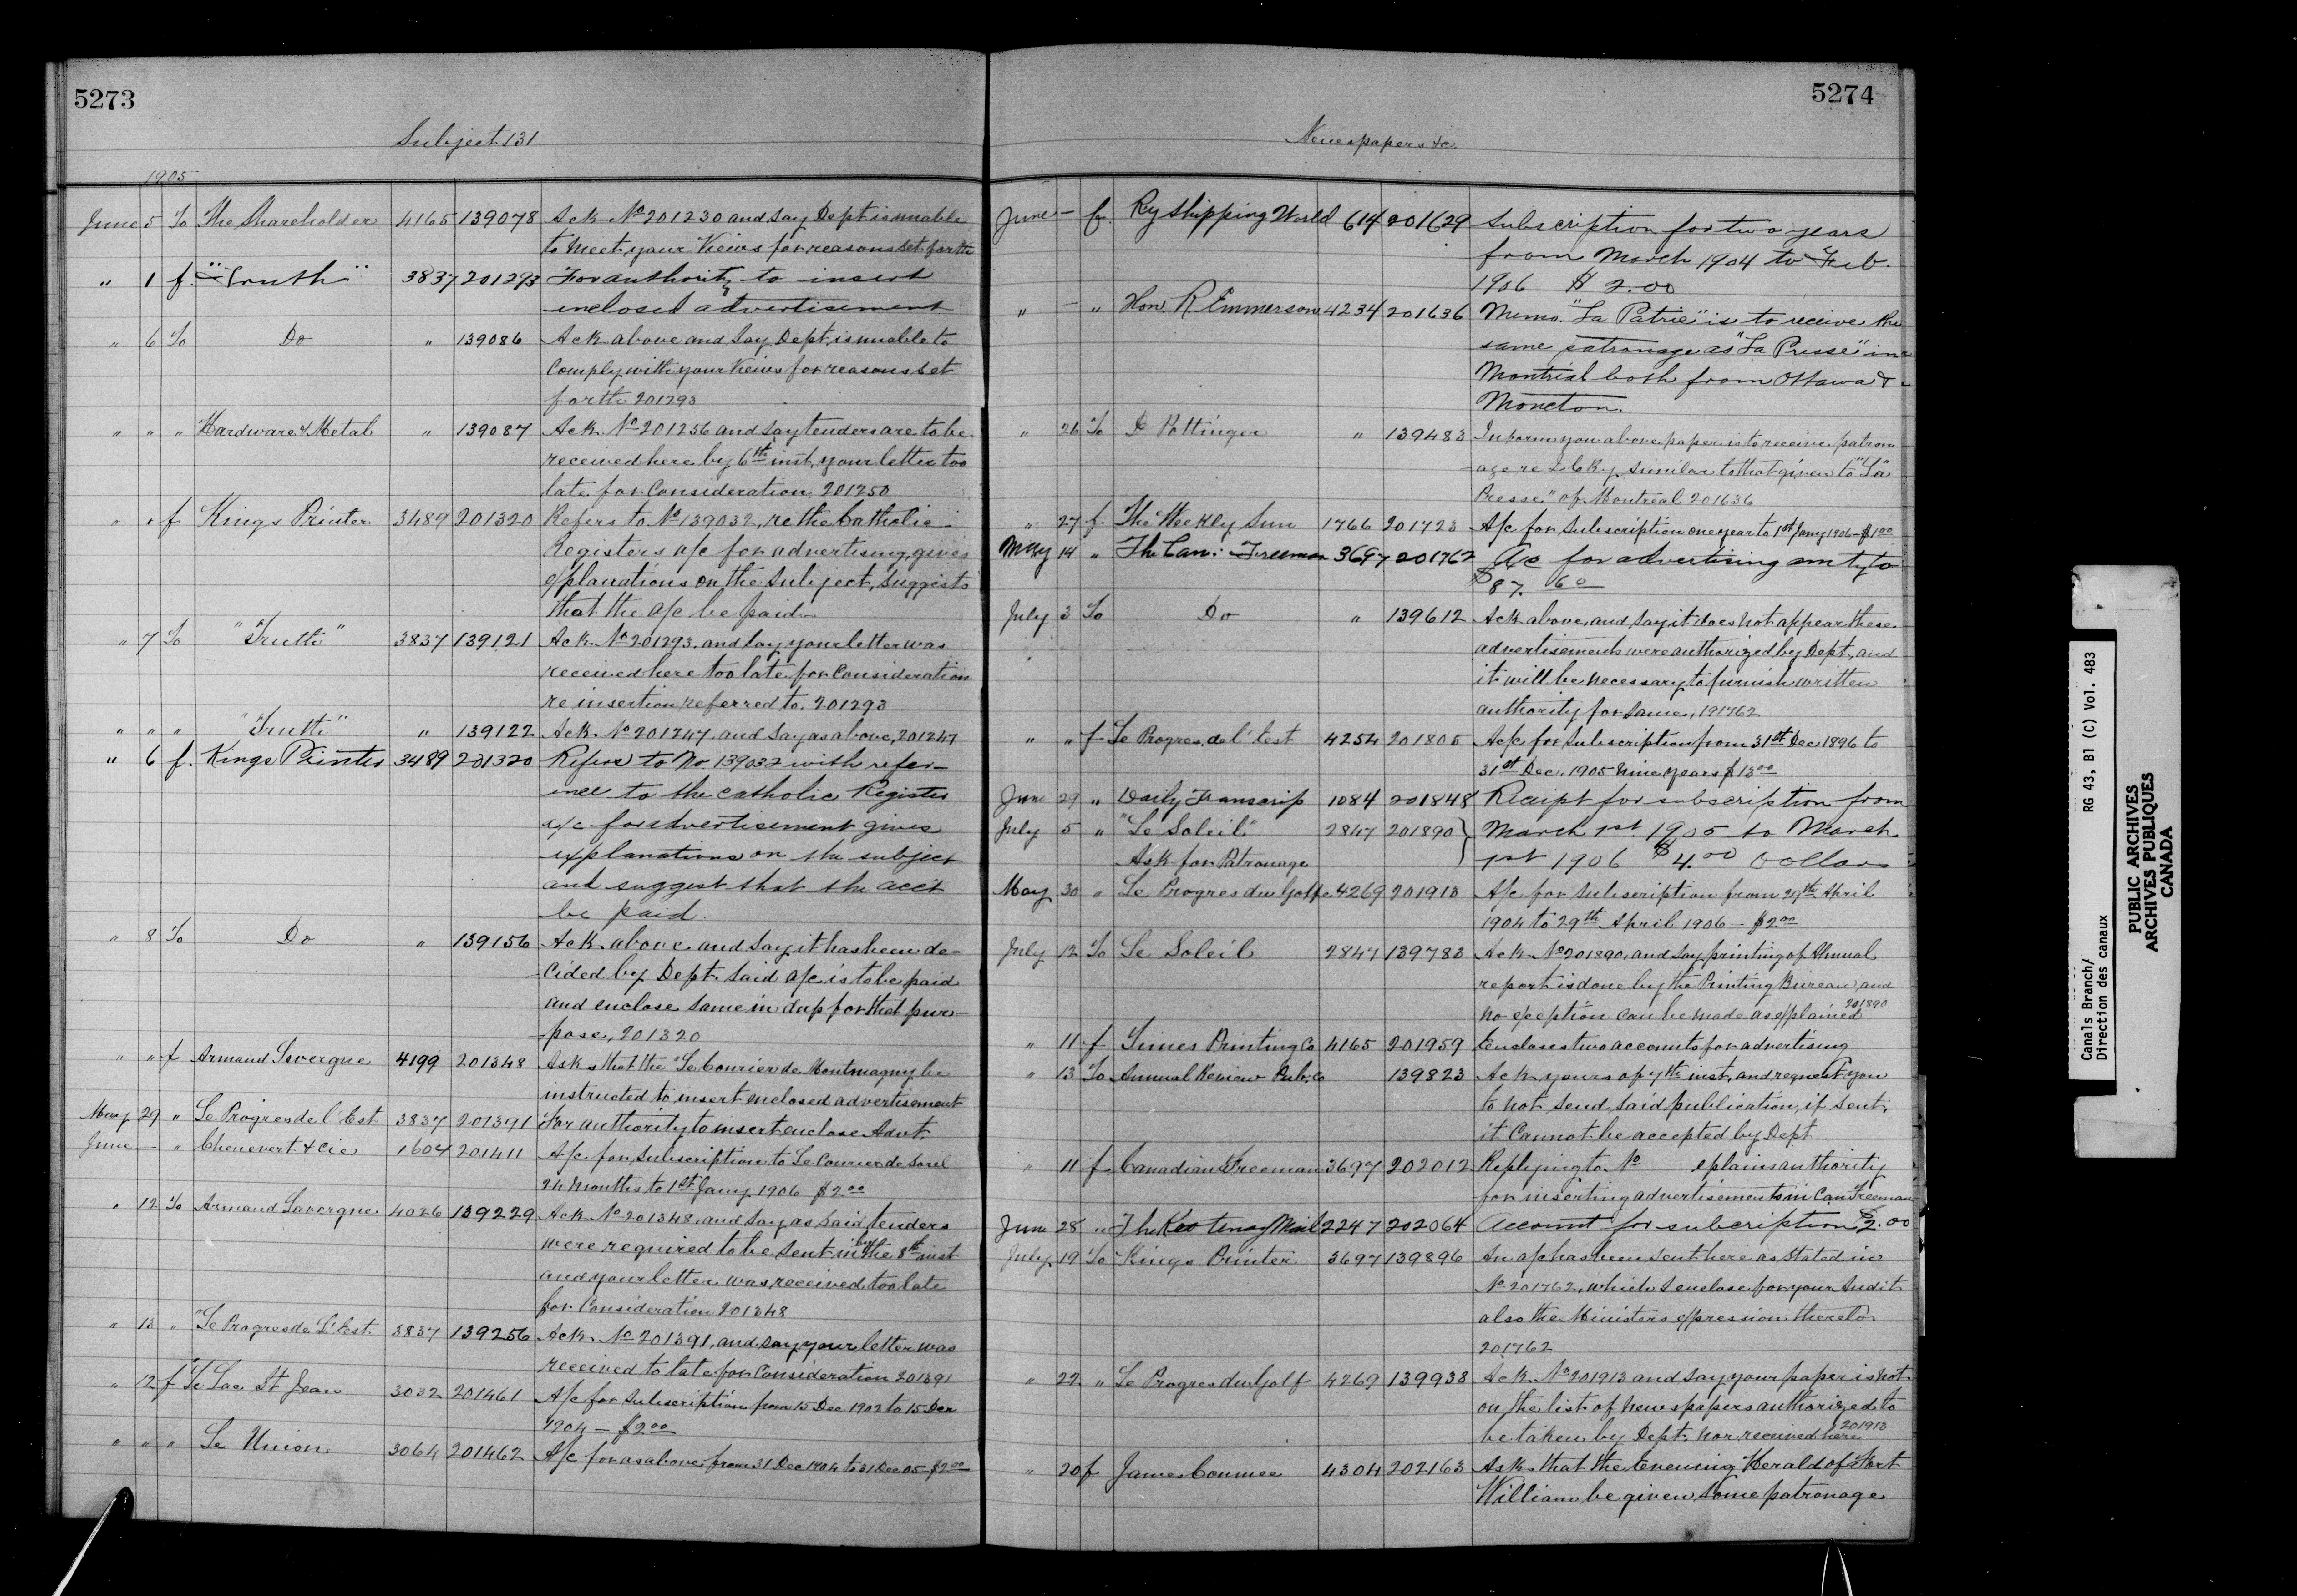 5273
Subject 131
1905
June 5 To The Shareholder 4165 139078 Ack No 201230 and say Dept is unable
to meet your Views for reasons set forth
" 1 f. "Truth" 3837 201293 For authority to insert
enclosed advertisement
" 6 To Do " 139086 Ack above and say Dept. is unable to
Comply with your Views for reasons set
forth 201293
" " " Hardware & Metal " 139087 Ack No 201256 and say tenders are to be
received here by 6th inst, your letter too
late for Consideration 201250
" " f Kings Printer 3489 201320 Refers to No 139032, re the Catholic
Registers a/c for advertising, gives
explanations on the subject, suggests
that the a/c be paid
" 7 To "Truth" 3837 139121 Ack No 201293. and say your letter was
received here too late for Consideration
re insertion referred to. 201293
" " " "Truth" " 139122 Ack No 201247 and say as above, 201247
" 6 f. Kings Printer 3489 201320 Refers to No. 139032 with refer-
ence to the Catholic Register
a/c for advertisement gives
explanations on the subject
and suggest that the acct
be paid.
" 8 To Do " 139156 Ack above and say it has been de-
cided by Dept. said a/c is to be paid
and enclose same in dup for that pur-
pose, 201320
" " f Armand Lavergne 4199 201348 Asks that the "Le Courier de Montmagny be
instructed to insert enclosed advertisement
May 29 " Le Progres de l'Est 3837 201391 For authority to insert enclose Advt.
June - " Chenevert & Cie 1604 201411 A/c for subscription to Le Courier de Sorel
24 months to 1st Jany 1906 $2.00
" 12 To Armand Lavergne 4026 139229 Ack No 201348, and say as said tenders
were required to be sent in by the 8th inst
and your letter was received too late
for Consideration 201348
" 13 " "Le Progres de L'Est. 3837 139256 Ack. No 201391, and say your letter was
received to late for Consideration 201391
" 12 f "Le Lac St Jean 3032 201461 A/c for subscription from 15 Dec 1902 to 15 Dec
1904 - $2.00
" " " Le Union 3064 201462 A/c for as above from 31 Dec 1904 to 31 Dec 05 - $2.00
5274
Newspapers &c.
June - f. Ry Shipping World 614 201629 Subscription for two years
from March 1904 to Feb.
1906 $ 2.00
" - " Hon. R Emmerson 4234 201636 Memo. "La Patrie" is to receive the
same patronage as "La Presse" in
Montreal both from Ottawa &
Moncton.
" 26 To D Pottinger " 139483 Inform you above paper is to receive patron-
age re I C Ry. similar to that given to "La
Presse" of Montreal 201636
" 27 f. The Weekly Sun 1766 201723 A/c for subscription one year to 1st Jany 1906 - $1.00
May 14 " The Can: Freeman 3697 201762 A/c for advertising amtg to
$87.60
July 3 To Do " 139612 Ack above, and say it does not appear these
advertisements were authorized by Dept, and
it will be necessary to furnish written
authority for same, 191762
" " f Le Progres de l'Est 4254 201805 A/c for subscription from 31st Dec 1896 to
31st Dec. 1905 Nine years $13.00
June 29 " Daily Transcrip 1084 201848 Reciept for subscription from
July 5 " "Le Soleil" 2847 201890 } March 1st 1905 to March
Ask for Patronage 1st 1906 $4.00 Dollars
May 30 " Le Progres du Golfe 4269 201913 A/c for subscription from 29th April
1904 to 29th April 1906 - $2.00
July 12 To Le Soleil 2847 139783 Ack No 201890, and say printing of Annual
report is done by the Printing Bureau, and
no exception can be made as explained 201890
" 11 f Times Printing Co 4165 201959 Encloses two accounts for advertising
" 13 To Annual Review Pub. Co 139823 Ack yours of 7th inst, and request you
to not send said publication, if sent,
it Cannot be accepted by Dept
" 11 f Canadian Freeman 3697 202012 Replying to No explains authority
for inserting advertisements in Can Freeman
June 28 " The Kootenay Mail 2247 202064 Account for subcription $2.00
July 19 To Kings Printer 3697 139896 An a/c has been sent here as stated in
No 201762, which I enclose for your Audit
also the Ministers expression thereto
201762
" 22 " Le Progres du Golf 4269 139938 Ack No 201913 and say your paper is not
on the list of newspapers authorized to
be taken by Dept. nor received here 201913
" 20 f James Conmee 4304 202163 Asks that the Evening Herald of Fort
William be given some patronage
Canals Branch/ RG 43, B1 (C) Vol. 483
Direction des canaux
PUBLIC ARCHIVES
ARCHIVES PUBLIQUES
CANADA